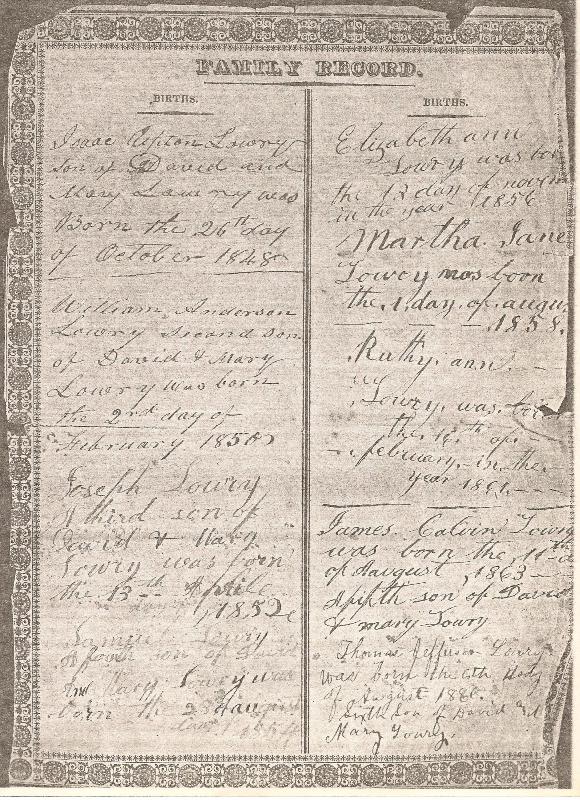 FAMILY RECORD.
BIRTHS.
Isaac Lowry
son of David and
Mary Lowry was
Born the 26th day
of October 1848
William Anderson
Lowry Second son
of David & Mary
Lowry was born
the 2nd day of
February 1850
Joseph Lowry
A third son of
David & Mary
Lowry was born
the 13th Aprile
day 1852
Samuel Lowry
A fouth son of David
and Mary Lowry was
born the 23
1854
BIRTHS.
Elizabeth ann
Lowry was born
the 12 day of novem
in the year 1856
Martha. Jane
Lowry was boon
the. 1. day. of. augu
1858.
Ruthy. ann.
Lowry. was. born
the 12.th of.
february. in. the.
year 1861.
James. Calvin Lowry
was born the 11th d
of August 1863
A fifth son of David
& mary Lowry
Thomas Jefferson Lowry
was born the 6th day
of August 186
Sixth son of David and
Mary Lowry.